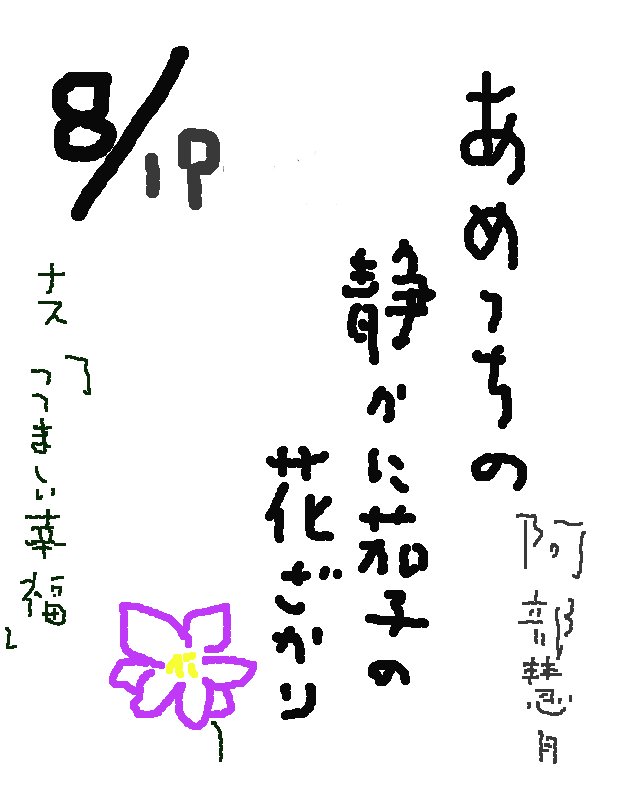 8/19
あめつちの
静かに茄子の
花ざかり
阿部慧月
ナス
「つつましい幸福」